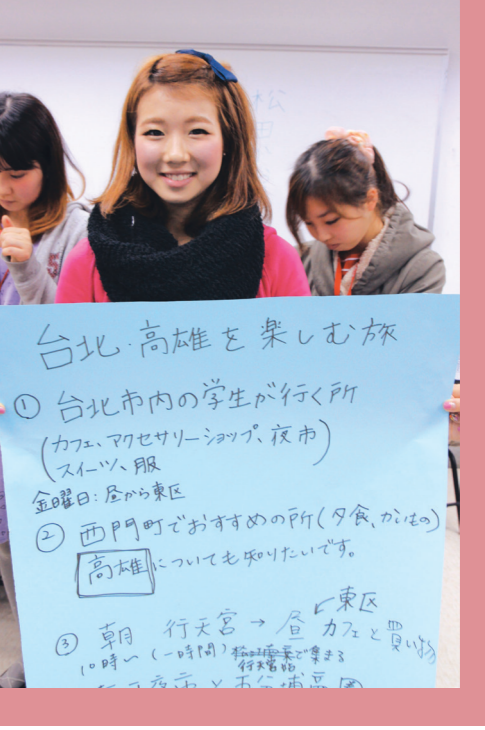 台北・高雄を楽しむ旅
① 台北市内の学生が行く所
(カフェ、アクセサリーショップ、夜市
スイーツ、服)
金曜日:昼から東区
② 西門町でおすすめの所(夕食、かいもの)
高雄についても知りたいです。
東区
③ 朝 行天宮 → 昼 カフェと買い物
10時〜(一時間) で集まる
行天宮